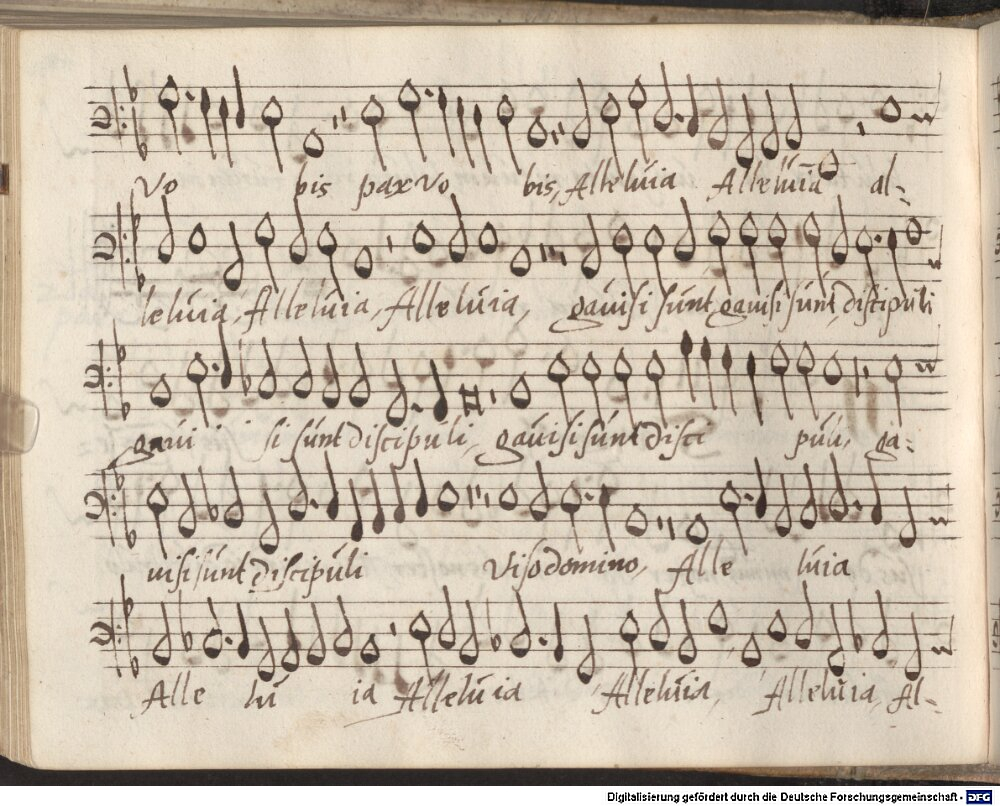 Vo bis pax vo bis, Alleluia Alleluia al-
leluia, Alleluia, Alleluia, gauisi sunt, gauisi sunt, discipuli
gaui si sunt discipuli, gauisi sunt disci puli, ga-
uisi sunt discipuli Viso domino, Alle luia
Alle lu ia Alleluia Alleluia, Alleluia, Al-
Digitalisierung gefördert durch die Deutsche Forschungsgemeinschaft - DFG